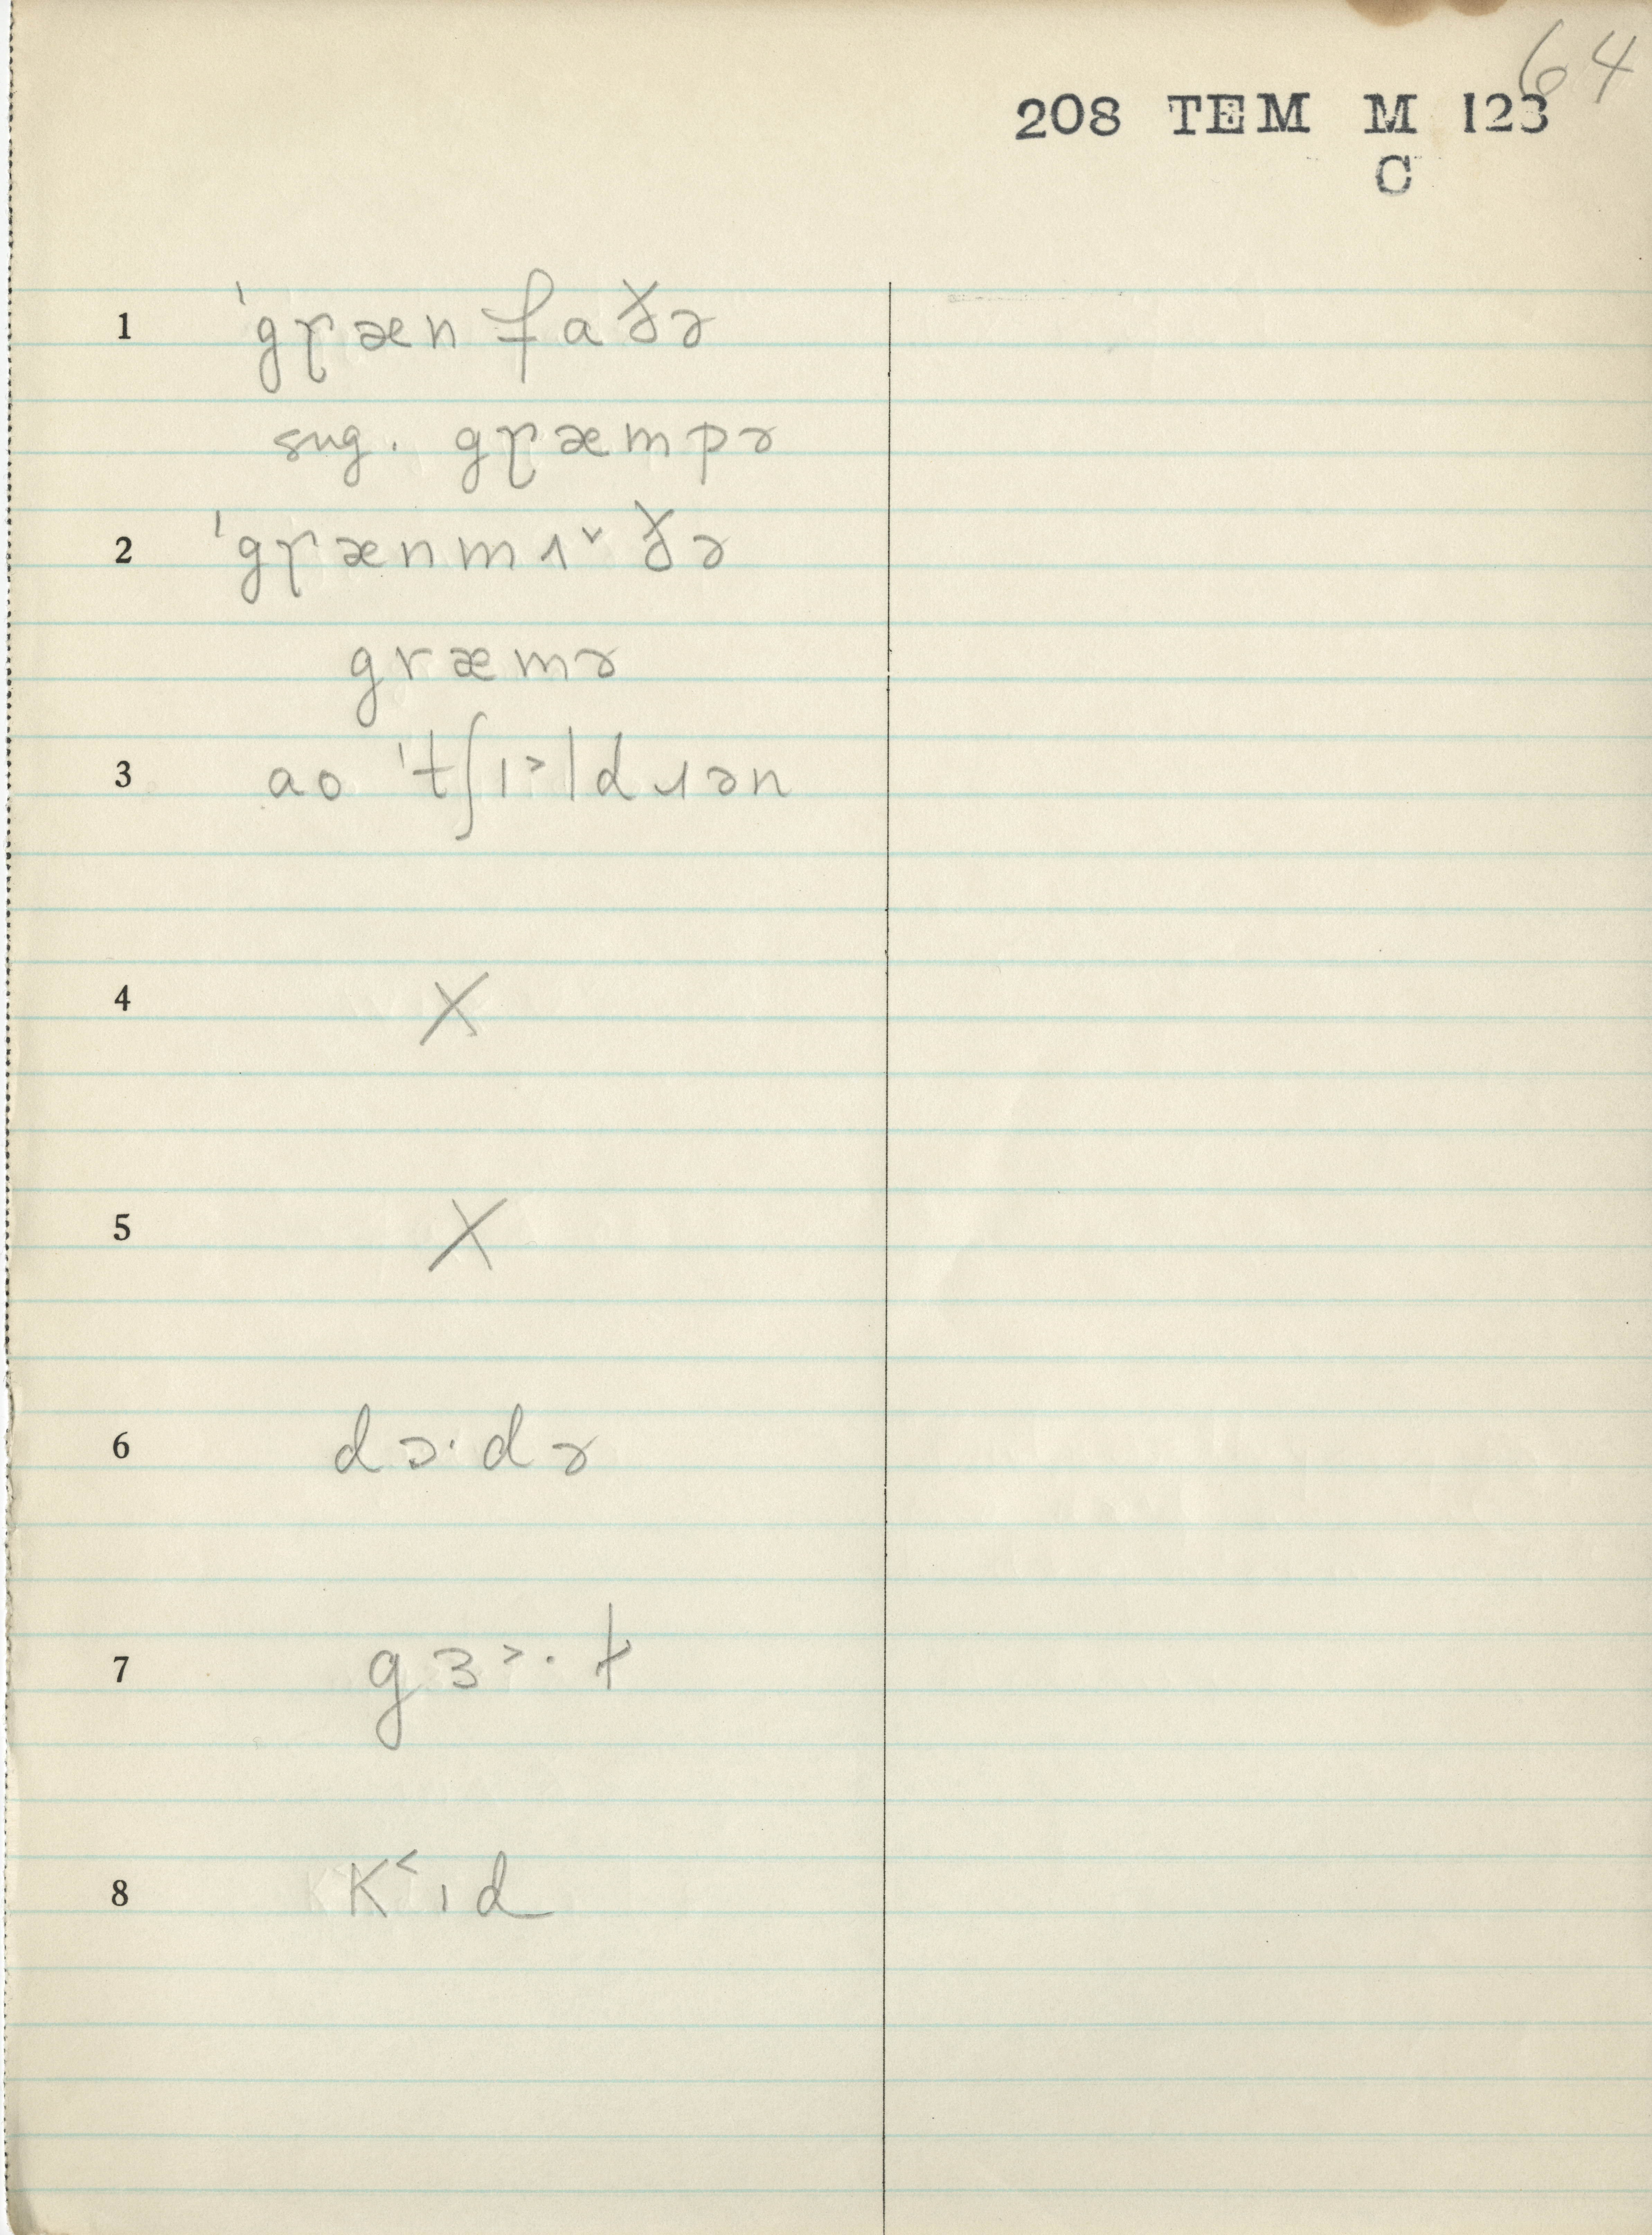 64
208 TEM M 123
C
1 ˈgɽæn faðɚ
sug. gɽæmpɚ
2 ˈgɽænmʌ˅ðɚ
græmɚ
3 ao ˈtʃɪ˃ldɹən
4 X
5 X
6 dɔ·dɚ
7 gɜ˃·ɫ
8 K˂ɪd